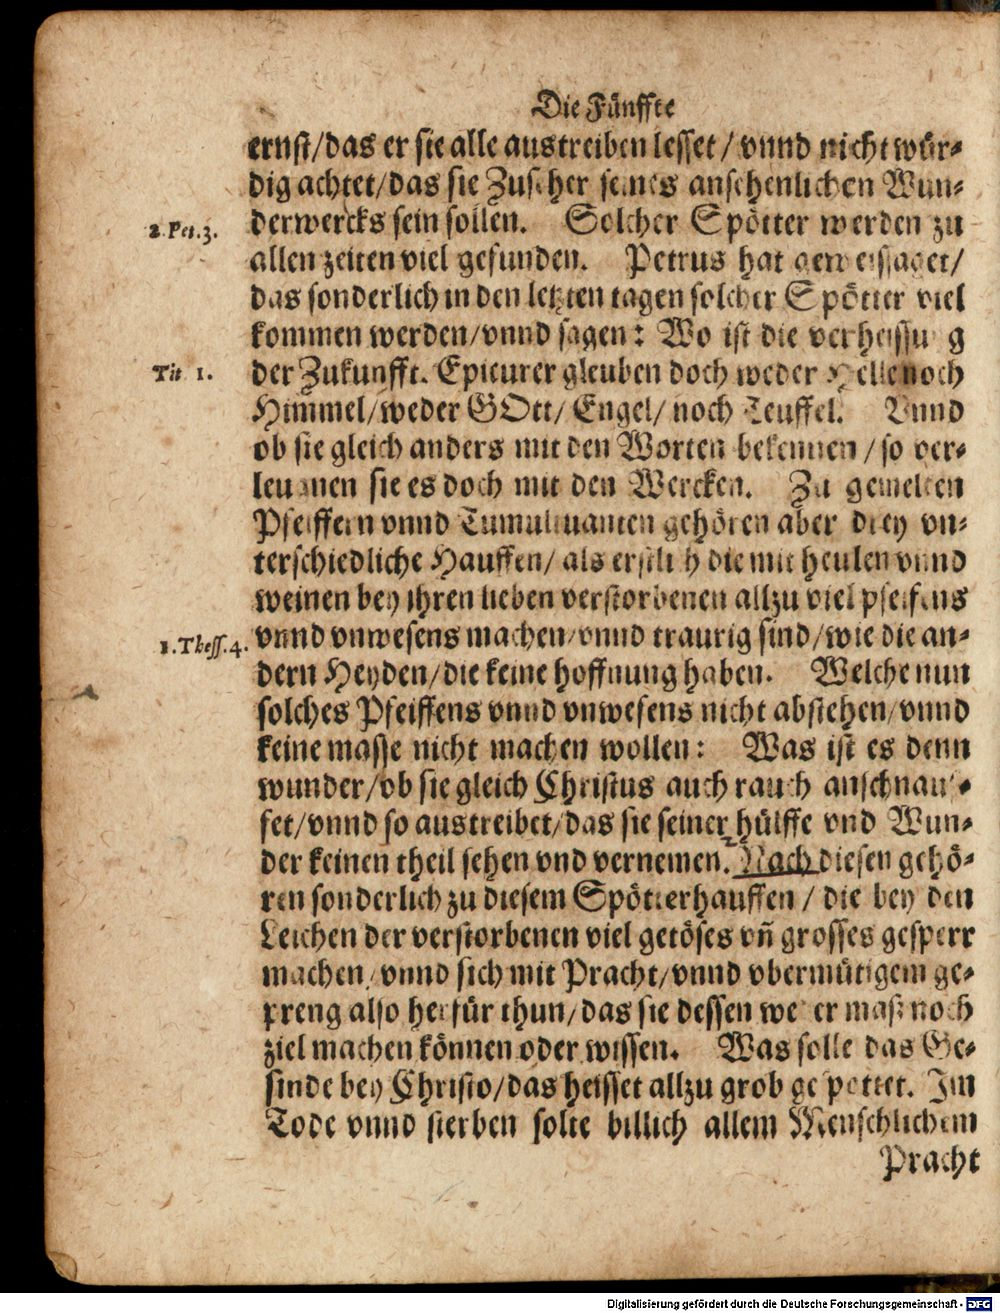 Die Fünffte
ernst/das er sie alle austreiben lesset / vnnd nicht wür-
dig achtet/das sie Zuseher seines ansehenlichen Wun-
2. Pet. 3.
derwercks sein sollen. Solcher Spötter werden zu
allen zeiten viel gefunden. Petrus hat geweissaget/
das sonderlich in den letzten tagen solcher Spötter viel
kommen werden/vnnd sagen: Wo ist die verheissung
Tit 1.
der Zukunfft. Epicurer gleuben doch weder Helle noch
Himmel/weder GOtt/ Engel/ noch Teuffel. Vnnd
ob sie gleich anders mit den Worten bekennen / so ver-
leugnen sie es doch mit den Wercken. Zu gemelten
Pfeiffern vnnd Tumultuanten gehören aber drey vn-
terschiedliche Hauffen/ als erstlich die mit heulen vnnd
weinen bey ihren lieben verstorbenen allzu viel pfeifens
1. Thess. 4.
vnnd vnwesens machen/vnnd traurig sind/wie die an-
dern Heyden/die keine hoffnung haben. Welche nun
solches Pfeiffens vnnd vnwesens nicht abstehen/vnnd
keine masse nicht machen wollen: Was ist es denn
wunder/ob sie gleich Christus auch rauch anschnau-
fet/vnnd so austreibet/das sie seiner hülffe vnd Wun-
der keinen theil sehen vnd vernemen. Nach diesen gehö-
ren sonderlich zu diesem Spötterhauffen / die bey den
Leichen der verstorbenen viel getöses vñ grosses gesperr
machen/vnnd sich mit Pracht/vnnd vbermütigem ge-
preng also herfür thun/das sie dessen weder mass noch
ziel machen können oder wissen. Was solle das Ge-
sinde bey Christo/das heisset allzu grob gespottet. Im
Tode vnnd sterben solte billich allem Menschlichem
Pracht
Digitalisierung gefördert durch die Deutsche Forschungsgemeinschaft - DFG